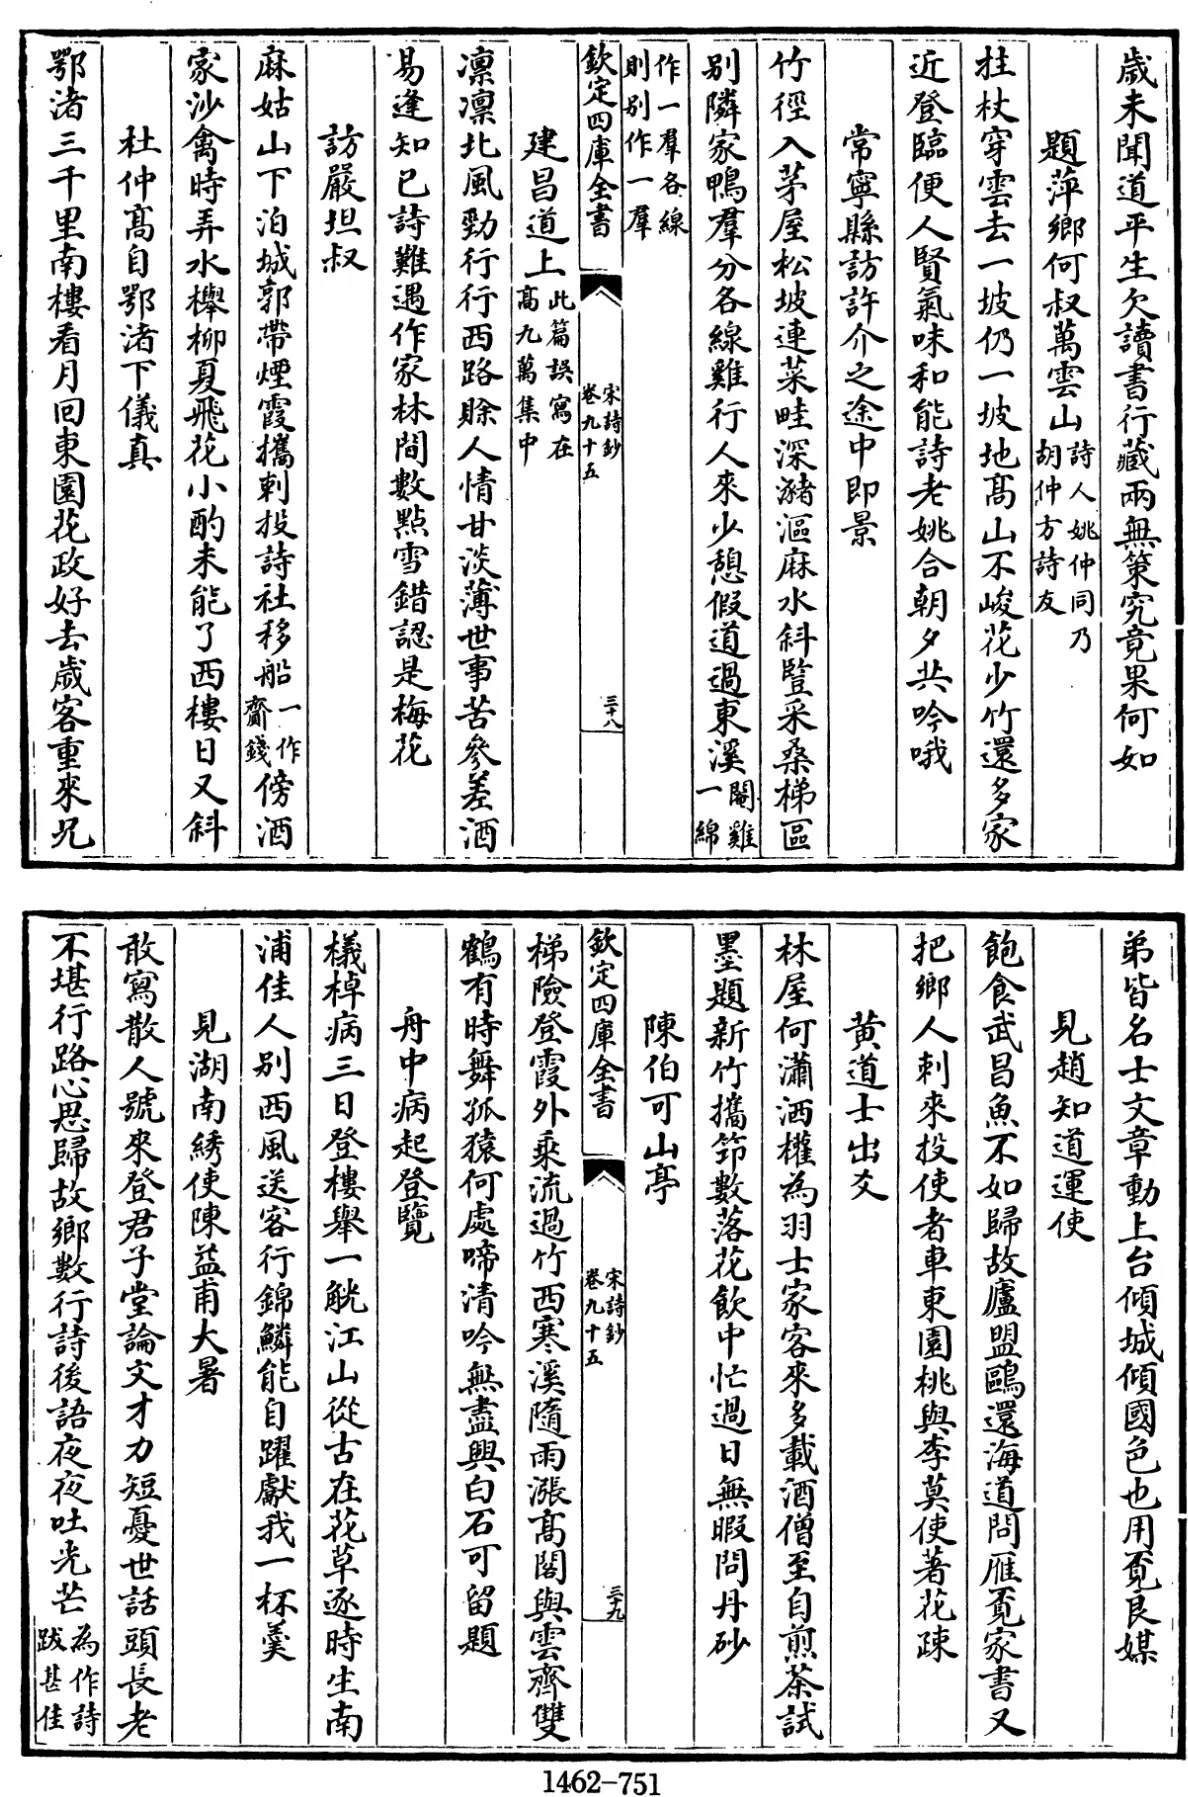 歲未聞道平生欠讀書行藏兩無策究竟果何如
題萍鄉何叔萬雲山詩人姚仲同乃
胡仲方詩友
拄杖穿雲去一坡仍一坡地髙山不峻花少竹還多家
近登臨便人賢氣味和能詩老姚合朝夕共吟哦
常寧縣訪許介之途中即景
竹徑入茅屋松坡連菜畦深瀦漚麻水斜豎采桑梯區
別隣家鴨羣分各線雞行人來少憩假道過東溪閹雞
一綿
作一羣各線
則別作一羣
欽定四庫全書
宋詩鈔
卷九十五
三十八
建昌道上此篇誤寫在
髙九萬集中
凛凛北風勁行行西路賒人情甘淡薄世事苦參差酒
易逢知已詩難遇作家林間數點雪錯認是梅花
訪嚴坦叔
麻姑山下泊城郭帶煙霞攜刺投詩社移船一作
齎錢傍酒
家沙禽時弄水櫸柳夏飛花小酌未能了西樓日又斜
杜仲髙自鄂渚下儀真
鄂渚三千里南樓看月回東園花政好去歲客重來兄
弟皆名士文章動上台傾城傾國色也用覓良媒
見趙知道運使
飽食武昌魚不如歸故廬盟鷗還海道問雁覓家書又
把鄉人刺來投使者車東園桃與李莫使著花疎
黄道士出爻
林屋何瀟洒權為羽士家客來多載酒僧至自煎茶試
墨題新竹攜笻數落花飲中忙過日無暇問丹砂
陳伯可山亭
欽定四庫全書
宋詩鈔
卷九十五
三十九
梯險登霞外乘流過竹西寒溪隨雨漲髙閣與雲齊雙
鶴有時舞孤猿何處啼清吟無盡興白石可留題
舟中病起登覽
檥棹病三日登樓舉一觥江山從古在花草逐時生南
浦佳人別西風送客行錦鱗能自躍獻我一杯羮
見湖南繡使陳益甫大暑
敢寫散人號來登君子堂論文才力短憂世話頭長老
不堪行路心思歸故鄉數行詩後語夜夜吐光芒為作詩
跋甚佳
1462-751